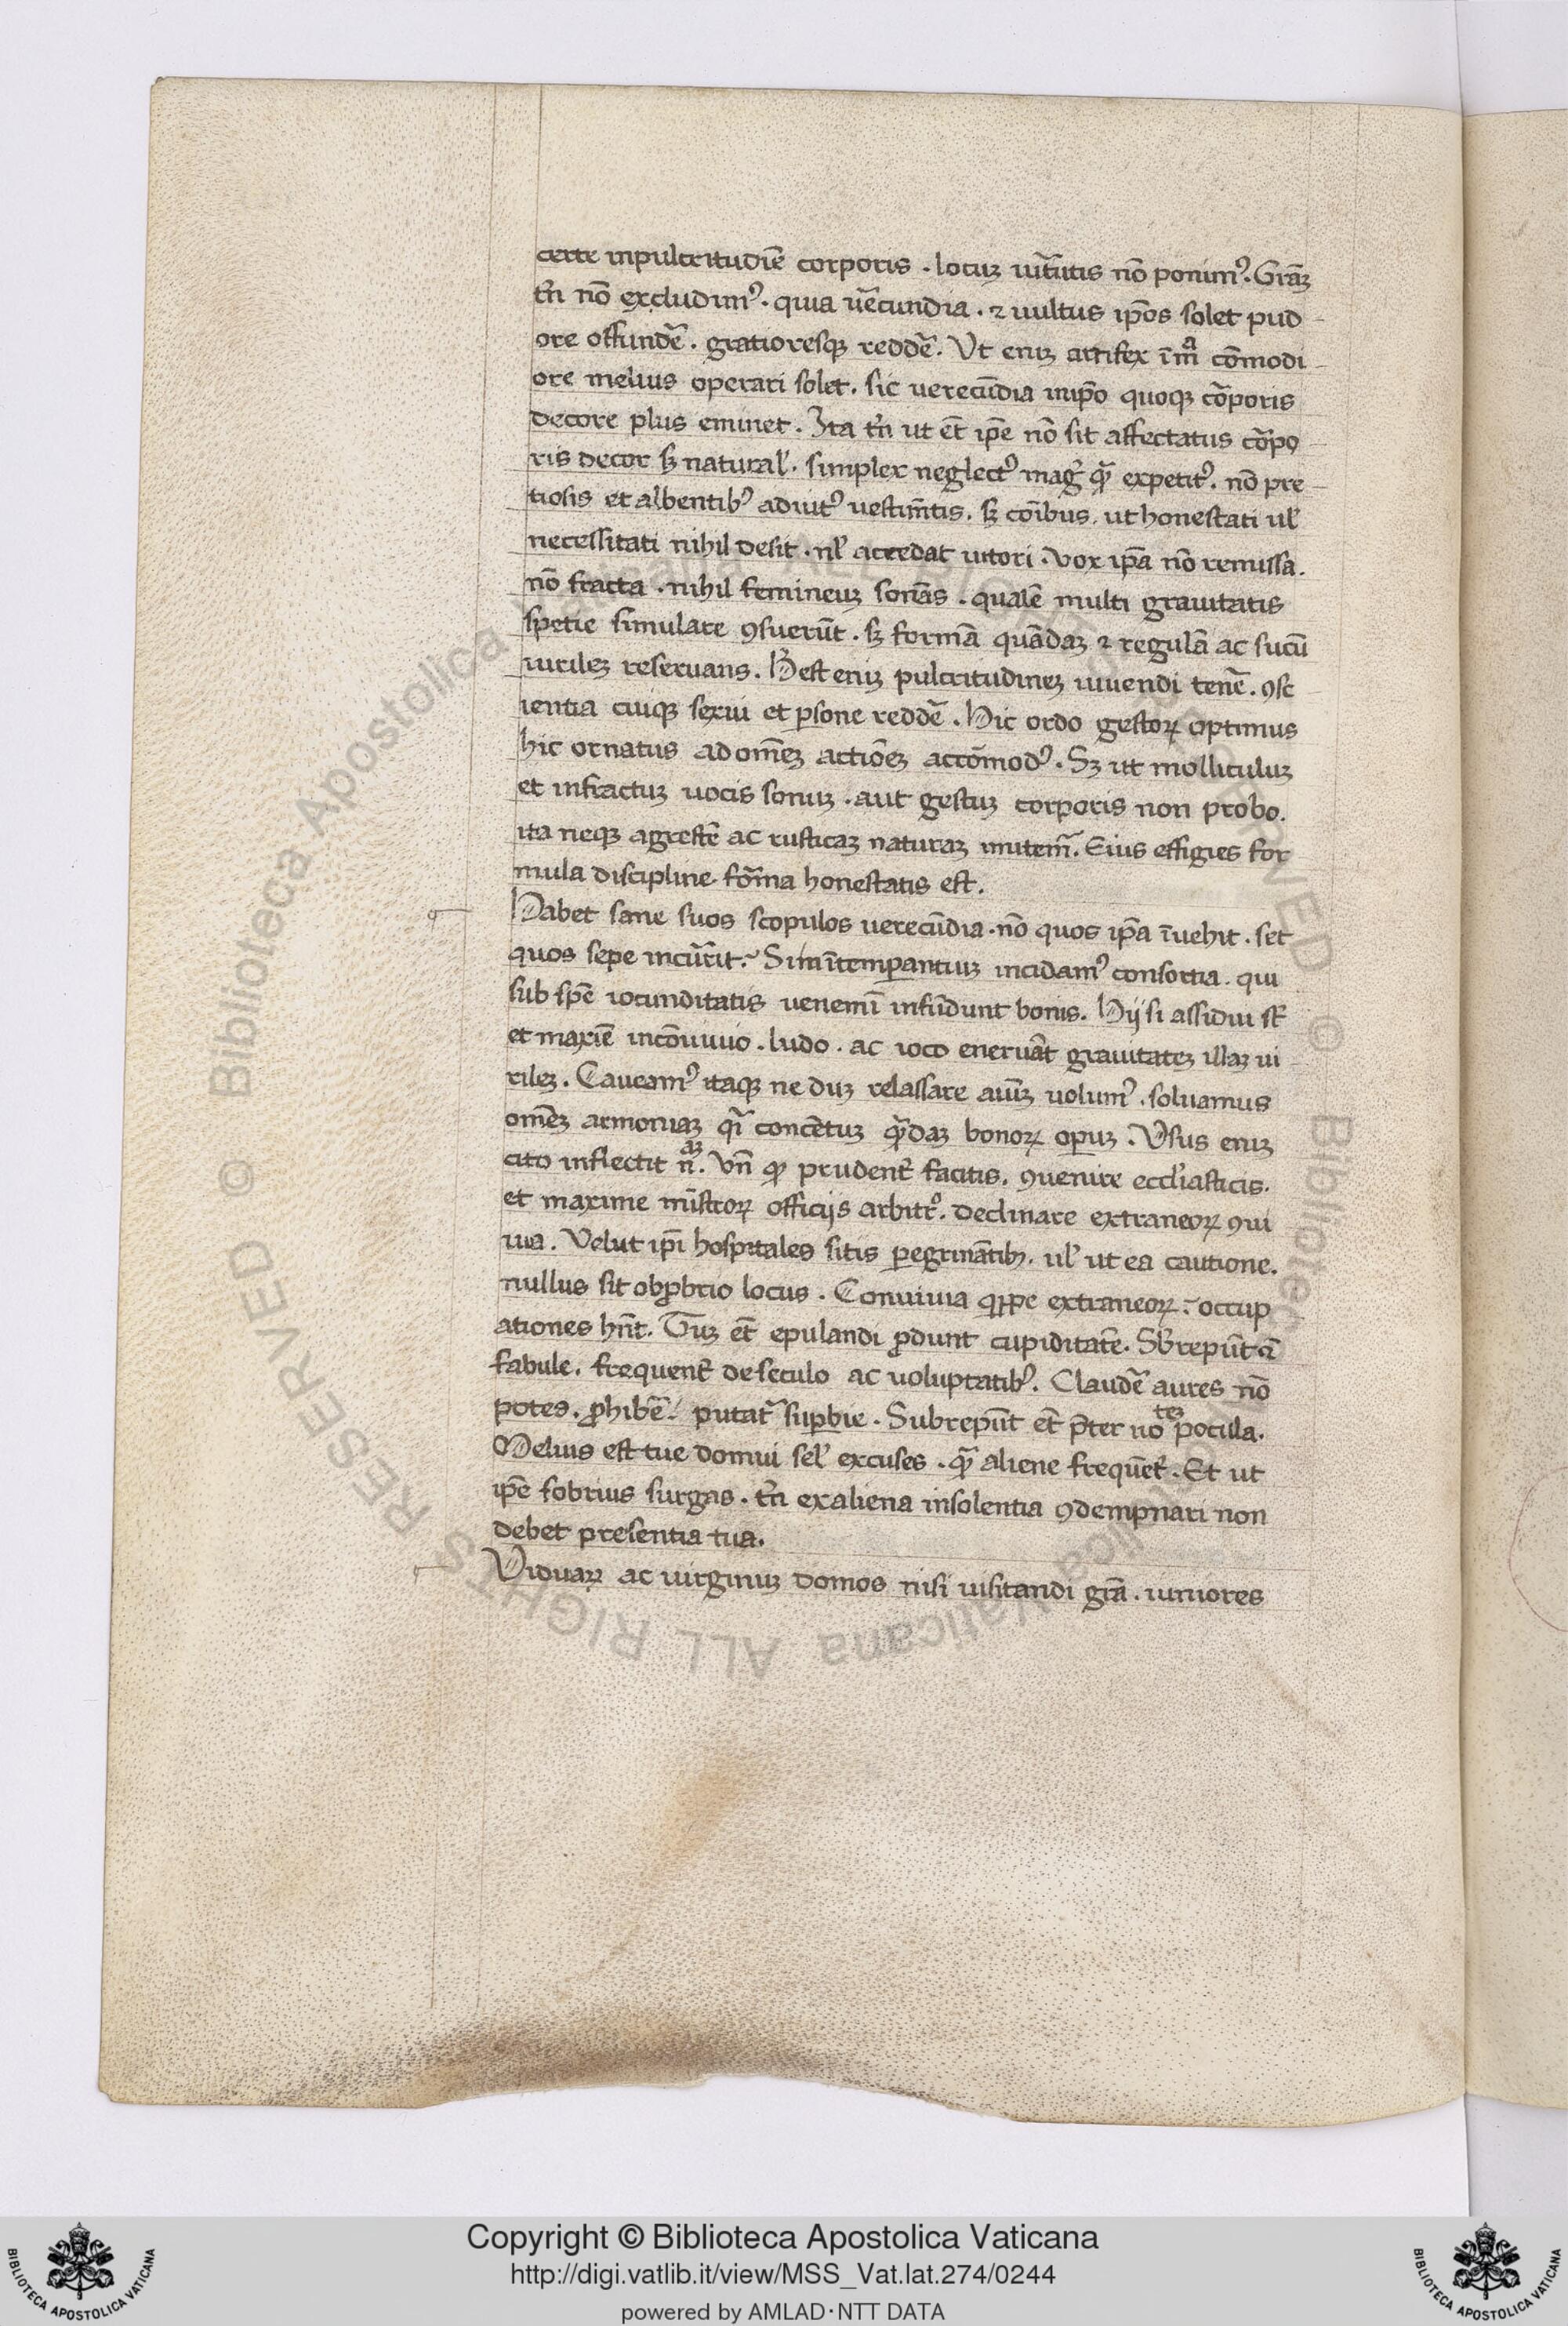 certe inpulcritudiē corporis . locuꝫ uͥtutis nō ponimꝰ. Grāꝫ
tn̄ nō excludimꝰ. quia uēcundia . ⁊ uultus ip̄os solet pud
ore offundē . gratioresqꝫ reddē. Ut eniꝫ artifex ī mᵃ cōmodi
ore melius operari solet. sic uerecūdia inip̄o quoqꝫ cōrporis
decore plus eminet. Ita tn̄ ut et̄ ip̄e nō sit affectatus cōrpo
ris decor sꝫ natural̓. simplex neglectꝰ mag̓ qͣ expetitꝰ. nō pre
tiosis et albentibꝰ adiutꝰ uestim̄tis. sꝫ cōibus. ut honestati ul̓
necessitati nihil desit . nl̓ accedat nitori . Vox ip̄a nō remissa.
nō fracta . nihil femineuꝫ sonās . qualē multi grauitatis
spetie simulare ꝯsuerūt. sꝫ formā quādaꝫ ⁊ regulā ac sucū
uirileꝫ reseruans. H̓ est eniꝫ pulcritudineꝫ uiuendi tenē. ꝯsc
ientia cuiqꝫ sexui et ꝑsone reddē. Hic ordo gestoꝝ optimus
hic ornatus ad omēꝫ actiōeꝫ accōmodꝰ. Sꝫ ut molliculuꝫ
et infractuꝫ uocis sonuꝫ . aut gestuꝫ corporis non probo.
ita neqꝫ agrestē ac rusticaꝫ naturaꝫ imitem̄. Eius effigies for
mula discipline. fōrma honestatis est.
Habet sane suos scopulos uerecūdia . nō quos ip̄a īuehit . set
quos sepe incūrit. Si inītemꝑantiuꝫ incidamꝰ consortia . qui
sub sp̄e iocunditatis uenenū infūdunt bonis. Hij si assidui st̄
et maxīe incōuiuio . ludo . ac ioco eneruāt grauitateꝫ illaꝫ ui
rileꝫ. Caueamꝰ itaqꝫ ne duꝫ relassare aīuꝫ uolumꝰ . soluamus
omēꝫ armoniaꝫ qͣi concētuꝫ qͣdaꝫ bonoꝝ oꝑuꝫ . Usus eniꝫ
cito inflectit n̄aꝫ. Un̄ ꝙ prudent̓ facitis. ꝯuenire eccl̓iasticis.
et maxime mīstroꝝ officijs arbitrͦ. declinare extraneoꝝ ꝯui
uia. Velut ip̄i hospitales sitis ꝑegrinātibꝫ. ul̓ ut ea cautione.
nullus sit obꝓbrio locus . Conuiuia quippe extraneoꝝ . occup
ationes hn̄t. Tuꝫ et̄ epulandi ꝓdunt cupiditatē. Sbrepūt ⁊
fabule. frequent̓ de seculo ac uoluptatibꝰ. Claudē aures nō
potes. ꝓhibē. putat̄ suꝑbie . Subrepūt et̄ p̄ter uoteꝫ pocula.
Melius est tue domui sel̓ excuses . qͣ aliene frequēt̓ . Et ut
ip̄e sobrius surgas. tn̄ exaliena insolentia ꝯdempnari non
debet presentia tua.
Viduaꝝ ac uirginuꝫ domos nisi uisitandi gr̄a . iuniores
Copyright © Biblioteca Apostolica Vaticana
http://digi.vatlib.it/view/MSS_Vat.lat.274/0244
powered by AMLAD·NTT DATA
BIBLIOTECA APOSTOLICA VATICANA
BIBLIOTECA APOSTOLICA VATICANA
© Biblioteca Apostolica Vaticana ALL RIGHTS RESERVED